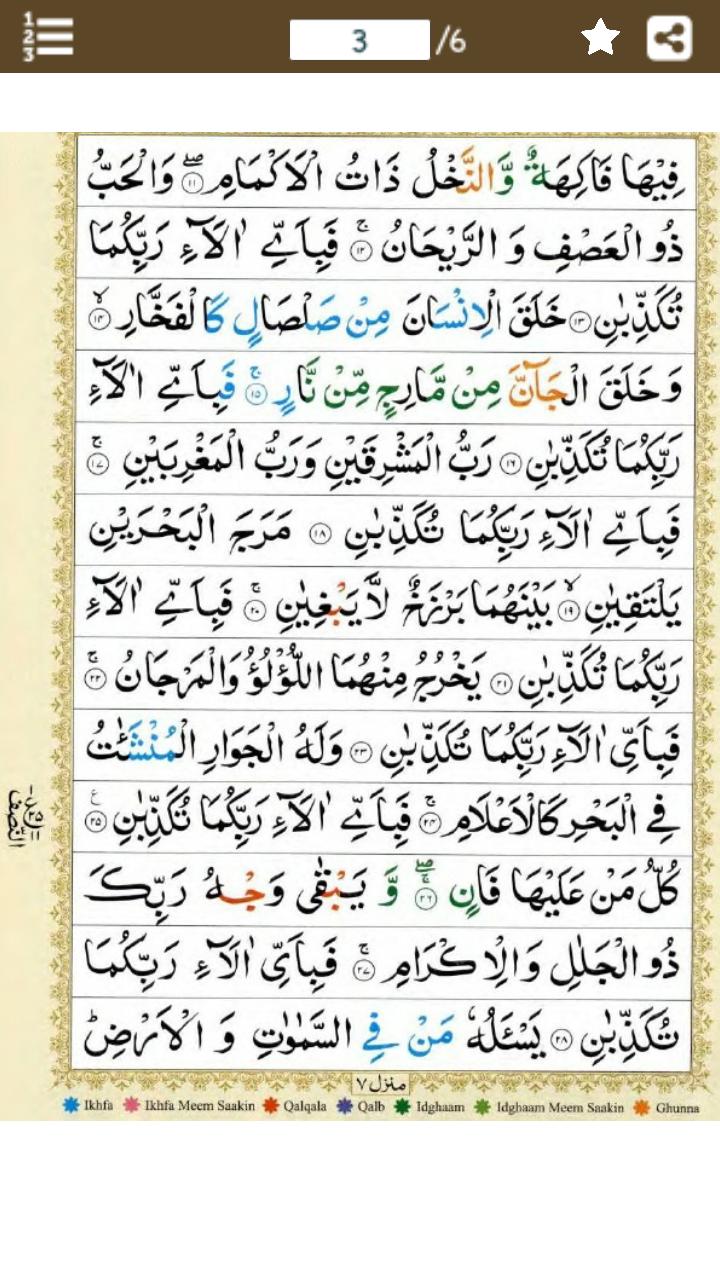 1
2
3
3 /6
فِيْهَا فَاكِهَةٌ وَّالنَّخْلُ ذَاتُ الْاَكْمَامِ ۖ ۱۱ وَالْحَبُّ
ذُو الْعَصْفِ وَ الرَّيْحَانُ ۚ ۱۲ فَبِاَيِّ اٰلَآءِ رَبِّكُمَا
تُكَذِّبٰنِ ۱۳ خَلَقَ الْاِنْسَانَ مِنْ صَلْصَالٍ كَالْفَخَّارِ ۙ ۱۴
وَ خَلَقَ الْجَآنَّ مِنْ مَّارِجٍ مِّنْ نَّارٍ ۚ ۱۵ فَبِاَيِّ اٰلَآءِ
رَبِّكُمَا تُكَذِّبٰنِ ۱۶ رَبُّ الْمَشْرِقَيْنِ وَرَبُّ الْمَغْرِبَيْنِ ۚ ۱۷
فَبِاَيِّ اٰلَآءِ رَبِّكُمَا تُكَذِّبٰنِ ۱۸ مَرَجَ الْبَحْرَيْنِ
يَلْتَقِيٰنِ ۙ ۱۹ بَيْنَهُمَا بَرْزَخٌ لَّا يَبْغِيٰنِ ۚ ۲۰ فَبِاَيِّ اٰلَآءِ
رَبِّكُمَا تُكَذِّبٰنِ ۲۱ يَخْرُجُ مِنْهُمَا اللُّؤْلُؤُ وَالْمَرْجَانُ ۚ ۲۲
فَبِاَيِّ اٰلَآءِ رَبِّكُمَا تُكَذِّبٰنِ ۲۳ وَلَهُ الْجَوَارِ الْمُنْشَـٰٔتُ
فِي الْبَحْرِ كَالْاَعْلَامِ ۚ ۲۴ فَبِاَيِّ اٰلَآءِ رَبِّكُمَا تُكَذِّبٰنِ ۲۵ ع
كُلُّ مَنْ عَلَيْهَا فَانٍ ۖ ۲۶ وَّ يَبْقٰى وَجْهُ رَبِّكَ
ذُو الْجَلٰلِ وَالْاِكْرَامِ ۚ ۲۷ فَبِاَيِّ اٰلَآءِ رَبِّكُمَا
تُكَذِّبٰنِ ۲۸ يَسْـَٔلُهٗ مَنْ فِي السَّمٰوٰتِ وَ الْاَرْضِ ؕ
النّصف
منزل ۷
Ikhfa Ikhfa Meem Saakin Qalqala Qalb Idghaam Idghaam Meem Saakin Ghunna